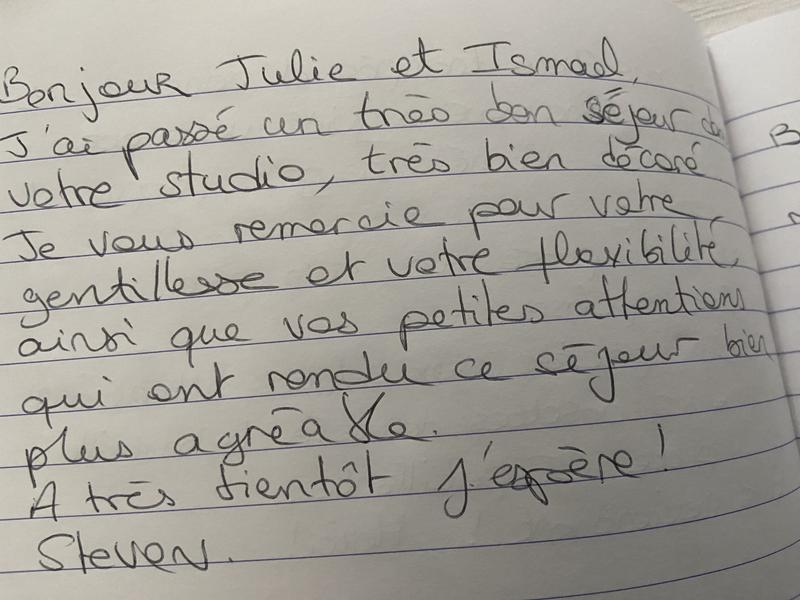 Bonjour Julie et Ismael,
J'ai passé un très bon séjour dans
votre studio, très bien décoré
Je vous remercie pour votre
gentillesse et votre flexibilité,
ainsi que vos petites attentions
qui ont rendu ce séjour bien
plus agréable.
A très bientôt j'espère !
Steven.